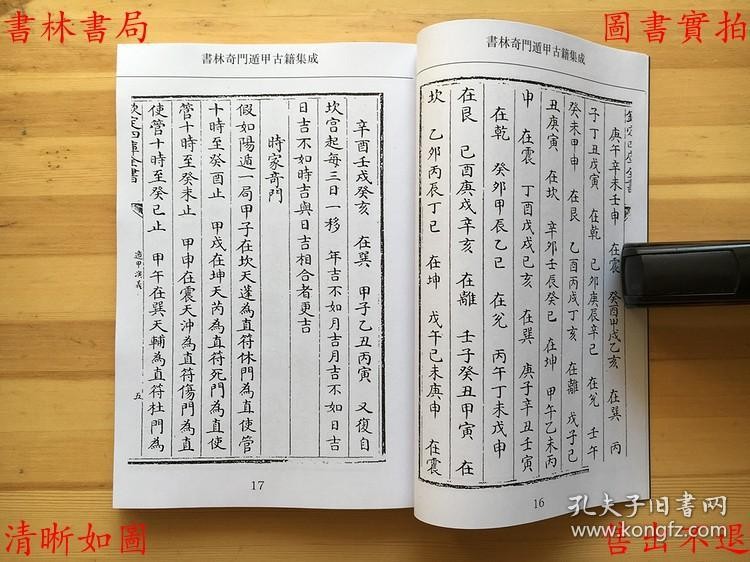 書林書局
圖書實拍
書林奇門遁甲古籍集成
欽定四庫全書
庚午辛未壬申 在震 癸酉甲戌乙亥 在巽 丙
子丁丑戊寅 在乾 己卯庚辰辛巳 在兌 壬午
癸未甲申 在艮 乙酉丙戌丁亥 在離 戊子己
丑庚寅 在坎 辛卯壬辰癸巳 在坤 甲午乙未丙
申 在震 丁酉戊戌己亥 在巽 庚子辛丑壬寅
在乾 癸卯甲辰乙巳 在兌 丙午丁未戊申
在艮 己酉庚戌辛亥 在離 壬子癸丑甲寅 在
坎 乙卯丙辰丁巳 在坤 戊午己未庚申 在震
16
書林奇門遁甲古籍集成
辛酉壬戌癸亥 在巽 甲子乙丑丙寅 又復自
坎宮起每三日一移 年吉不如月吉月吉不如日吉
日吉不如時吉與日吉相合者更吉
時家奇門
假如陽遁一局甲子在坎天蓬為直符休門為直使管
十時至癸酉止 甲戌在坤天芮為直符死門為直使
管十時至癸未止 甲申在震天沖為直符傷門為直
使管十時至癸巳止 甲午在巽天輔為直符杜門為
欽定四庫全書
遁甲演義
五
17
清晰如圖
售出不退
孔夫子旧書网
kongfz.com